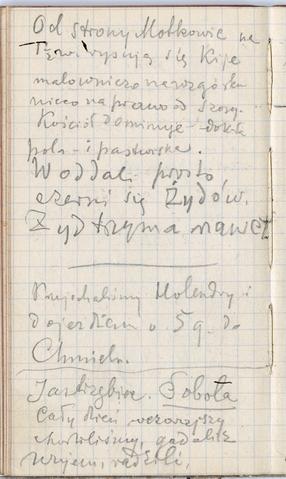 Od strony Mołkowic na
wrysują się Kije
malowniczo na wzgórku
nieco na prawo od szosy.
Kościół dominuje - dokoła
pola - i pastwiska.
W oddali prosto
czerni się Żydów.
Żyd trzyma nawet
Przejechaliśmy Holendry i
dojechałem o 5 g. do
Chmieln.
Jastrzębiec. Sobota
Cały dzień wczorajszy
chwaliliśmy, gadali z
wujem, radzili,